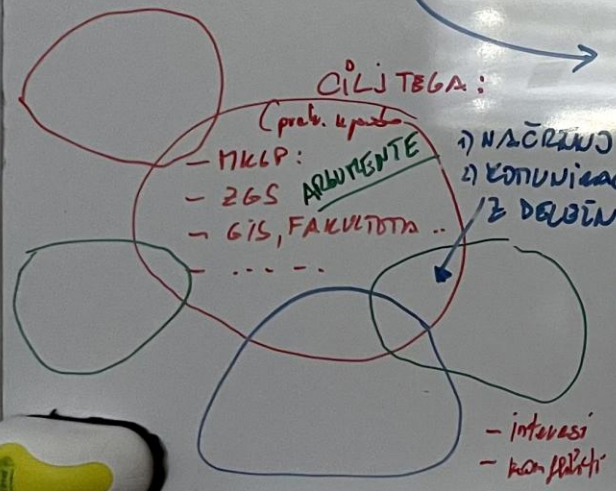 CILJ TEGA:
- MKGP:
- ZGS
ARGUMENTE
- GIS, FAKULTETA ..
- .....
1) NAČRTUJ
2) KOMUNIKA
Z DELEŽN
- interesi
- konflikti